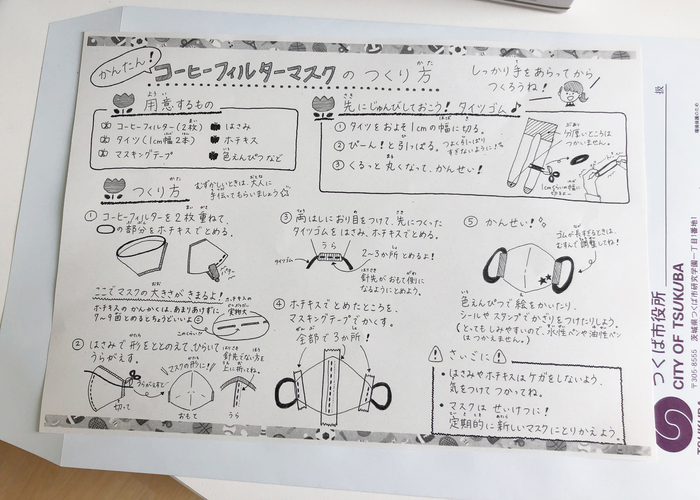 かんたん！
コーヒーフィルターマスクのつくり方
しっかり手をあらってから
つくろうね！
用意するもの
コーヒーフィルター（2枚）
タイツ（1cm幅2本）
マスキングテープ
はさみ
ホチキス
色えんぴつなど
先にじゅんびしておこう！タイツゴム♪
① タイツをおよそ1cmの幅に切る。
② びーん！と引っぱる。つよく引っぱり
すぎないように！
③ くるっと丸くなって、かんせい！
分厚いところは
つかいません。
1cmくらいの幅に
つくり方
むずかしいときは、大人に
手伝ってもらいましょう☆
① コーヒーフィルターを2枚重ねて、
の部分をホチキスでとめる。
ここでマスクの大きさがきまるよ！
ホチキスのかんかくは、あまりあけずに
7〜9回とめるとちょうどいいよ☺
ホチキスの
実物大
このくらい!!
② はさみで形をととのえて、ひらいて
うらがえす。
針先でない方を
上に折ってね。
切って
うらがえすと
マスクの形に！
おもて
うら
③ 両はしにおり目をつけて、先につくった
タイツゴムをはさみ、ホチキスでとめる。
うら
タイツゴム
2〜3か所とめるよ！
針先がおもて側に
なるようにとめよう。
④ ホチキスでとめたところを、
マスキングテープでかくす。
全部で3か所！
⑤ かんせい！
ゴムが長すぎるときは、
むすんで調整してね！
色えんぴつで絵をかいたり、
シールやスタンプでかざりをつけたりしよう。
（とってもしみやすいので、水性ペンや油性ペン
はつかえません。）
⚠ さいごに ⚠
・はさみやホチキスはケガをしないよう、
気をつけてつかってね。
・マスクは せいけつに！
定期的に新しいマスクにとりかえよう。
つくば市役所
CITY OF TSUKUBA
〒305-8555 茨城県つくば市研究学園一丁目1番地1